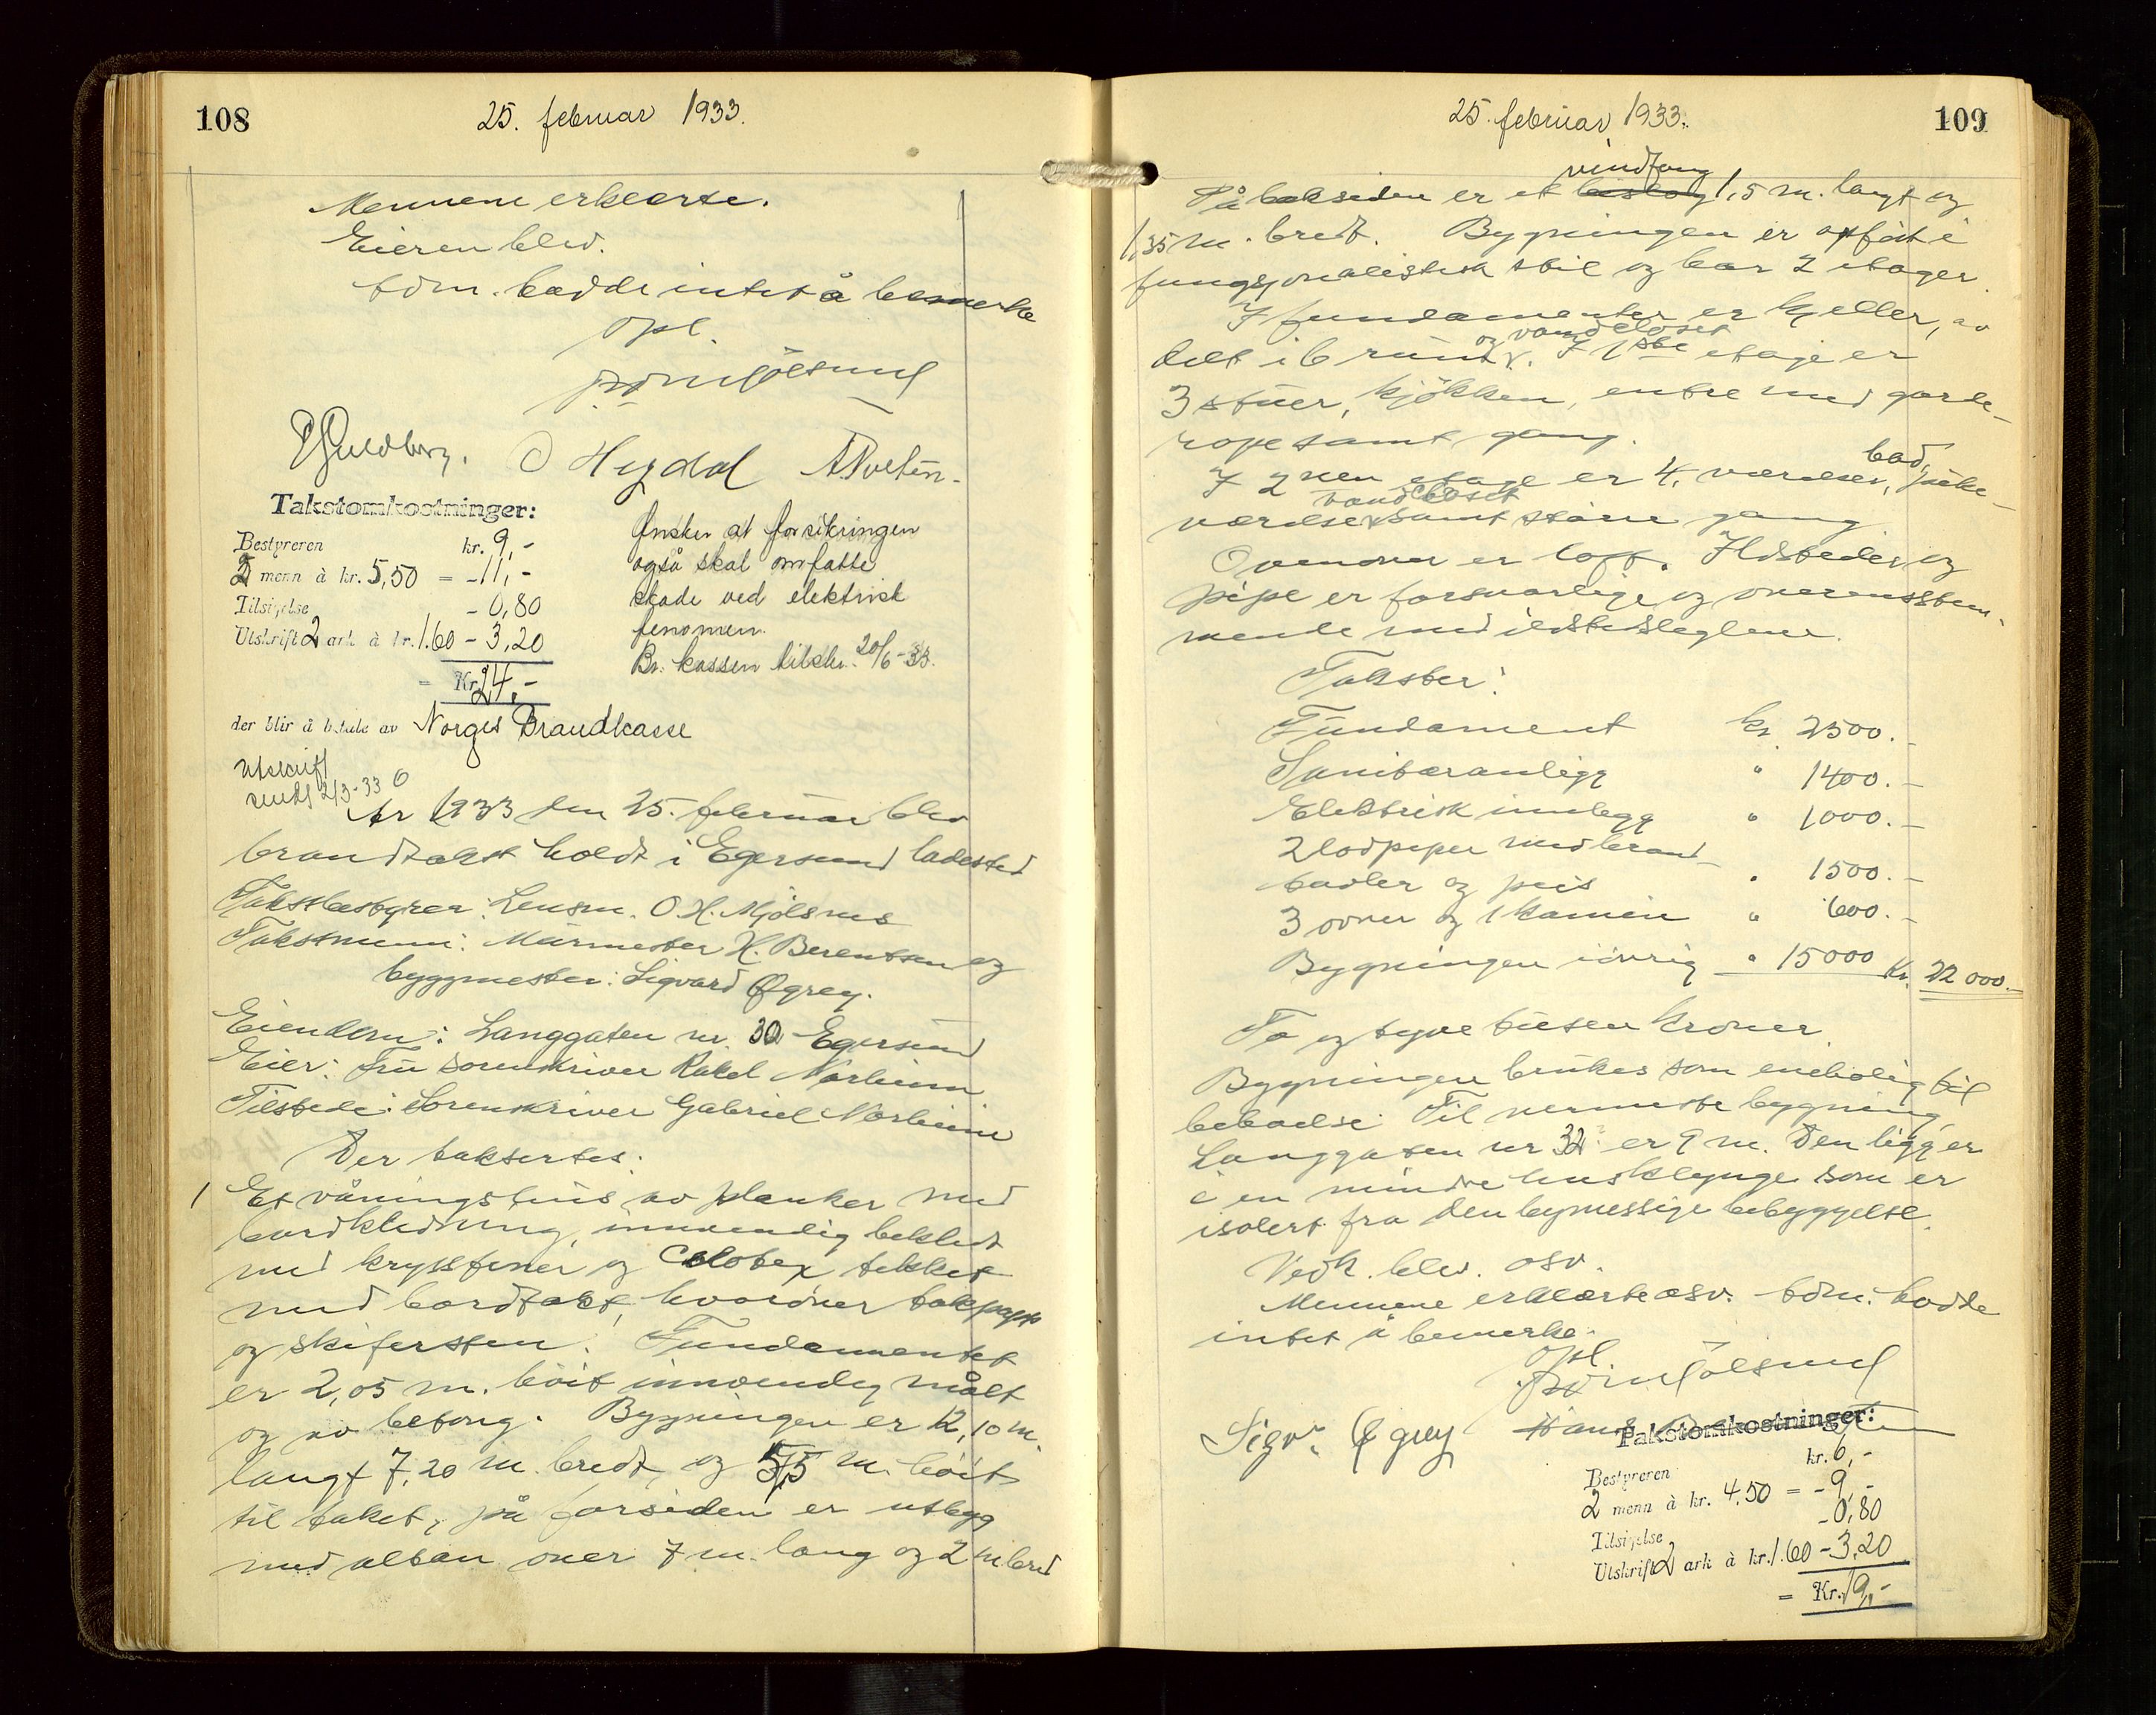 108
25. februar 1933.
Mennene erklærte.
Eieren blev.
tdm. hadde intet å bemerke
Opl.
Hegdal
Takstomkostninger:
Bestyreren kr. 9,-
2 menn à kr. 5,50 = -11,-
Tilsigelse - 0,80
Utskrift 2 ark à kr. 1.60 - 3,20
= Kr. 24,-
der blir å betale av Norges Brandkasse
Ønsker at forsikringen
også skal omfatte
skade ved elektrisk
fenomen.
Br. kassen tilskr. 20/6-33.
Utskrift
sendt 2/3-33
År 1933 den 25. februar blev
brandtakst holdt i Egersund ladested
Takstbestyrer: Lensm. O. H. Mjølsnes
Takstmenn: Murmester H. Berentsen og
byggmester: Sigvard Øgrey.
Eiendom: Langgaten nr. 30 Egersund
Eier: Fru sorenskriver Rakel Norheim
Tilstede: Sorenskriver Gabriel Norheim
Der taksertes:
1 Et våningshus av planker med
bordkledning, innvendig bekledt
med kryssfiner og Celotex tekket
med bordtak, hvorover takpapp
og skifersten. Fundamentet
er 2,05 m. høit innvendig målt
og av betong. Bygningen er 12,10 m.
langt 7,20 m. bredt og 5,75 m. høit
til taket, på forsiden er utbygg
med altan over 7 m. lang og 2 m bred
109
25. februar 1933.
På baksiden er et vindfang 1,5 m. langt og
1,35 m. bredt. Bygningen er opført i
fungsjonalistisk stil og har 2 etager.
I fundamentet er kjeller, av
delt i 6 rum og vandcloset. I 1ste etage er
3 stuer, kjøkken, entre med garde-
rope samt gang.
I 2nen etage er 4 værelser, bad, pike-
værelse vandcloset samt større gang
Ovenover er loft. Ildsteder og
pipe er forsvarlige og overensstem-
mende med ildstedsreglene.
Takster:
Fundament kr. 2500.-
Sanitæranlegg " 1400.-
Elektrisk innlegg " 1000.-
2 lodpiper med brand-
tavler og peis " 1500.-
3 ovner og 1 kamin " 600.-
Bygningen iøvrig " 15000 Kr. 22000.-
To og tyve tusen kroner.
Bygningen brukes som enebolig til
beboelse. Til nermeste bygning
Langgaten nr 32 er 9 m. Den ligger
i en mindre husklynge som er
isolert fra den bymessige bebyggelse.
Vedk. blev. osv.
Mennene erklærte osv. tdm. hadde
intet å bemerke.
Opl.
Sigv. Øgrey Hans Berentsen
Takstomkostninger:
Bestyreren kr. 6,-
2 menn à kr. 4.50 = - 9,-
Tilsigelse - 0,80
Utskrift 2 ark à kr. 1.60 - 3,20
= Kr. 19,-